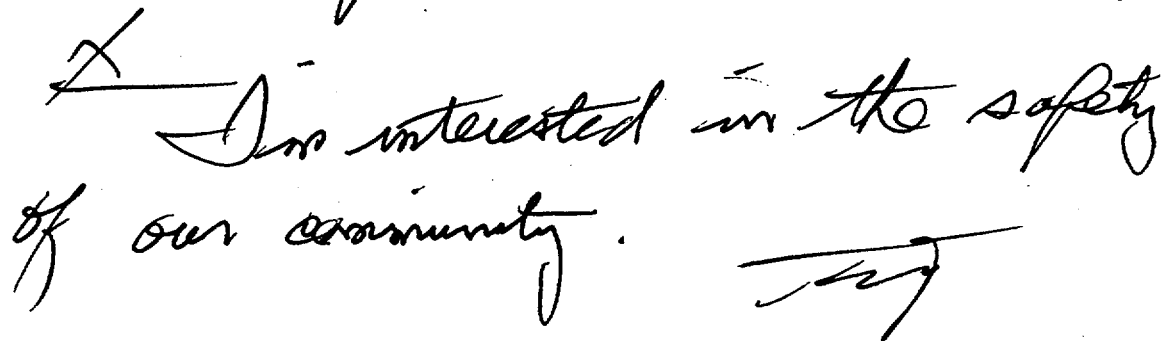 X
I'm interested in the safety
of our community.